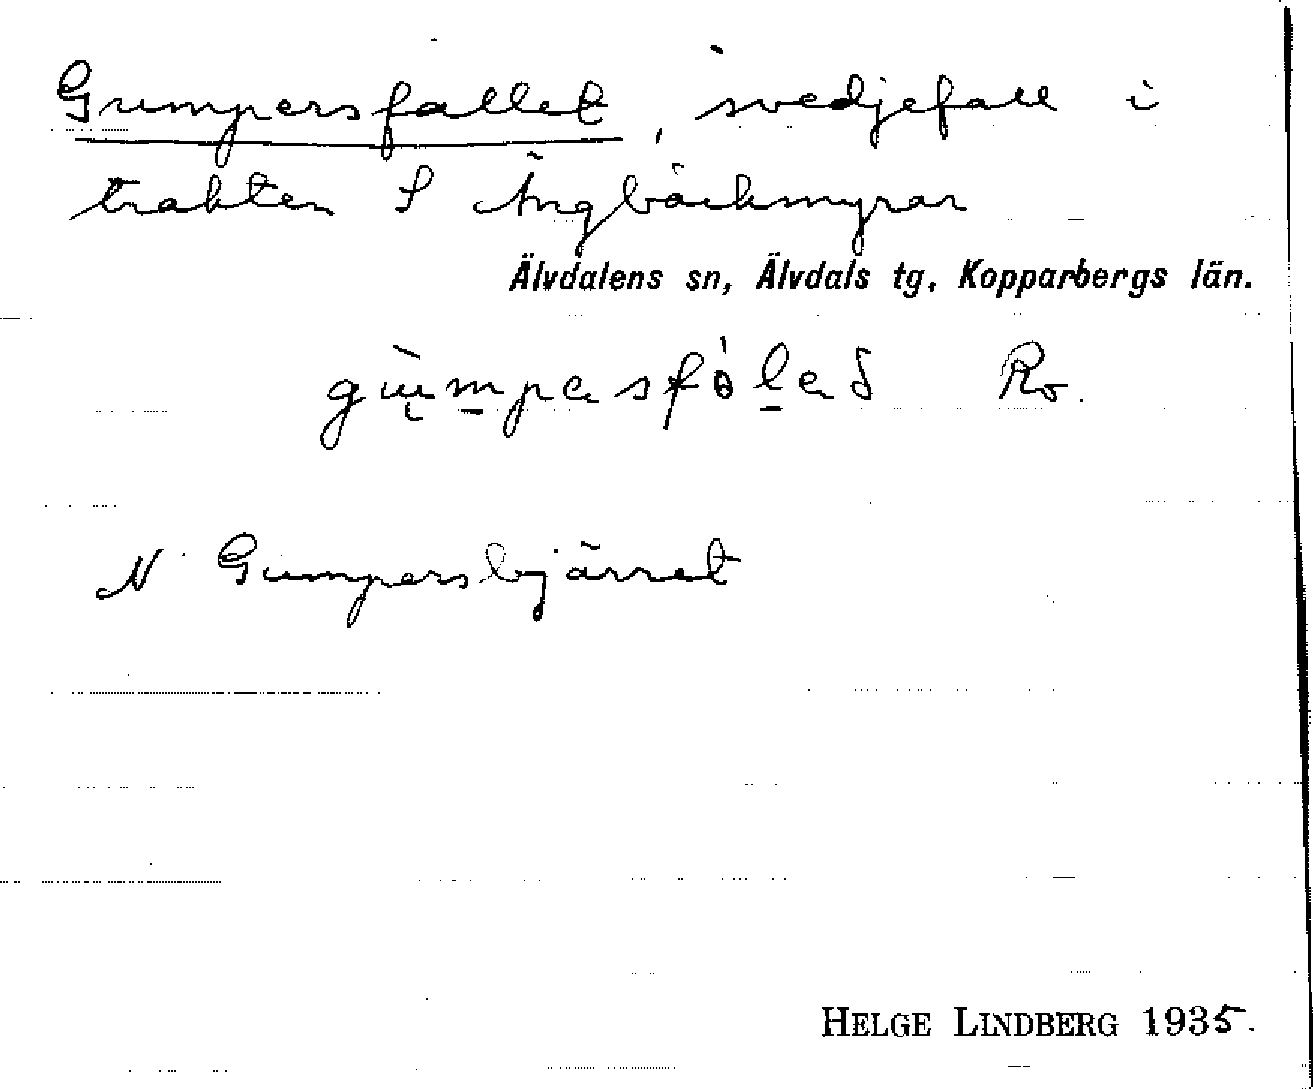 Gumpersfallet, svedjefall i
trakten S Ängbäckmyrar
Älvdalens sn, Älvdals tg, Kopparbergs län.
Ro.
N Gumpersbjärret
HELGE LINDBERG 1935.